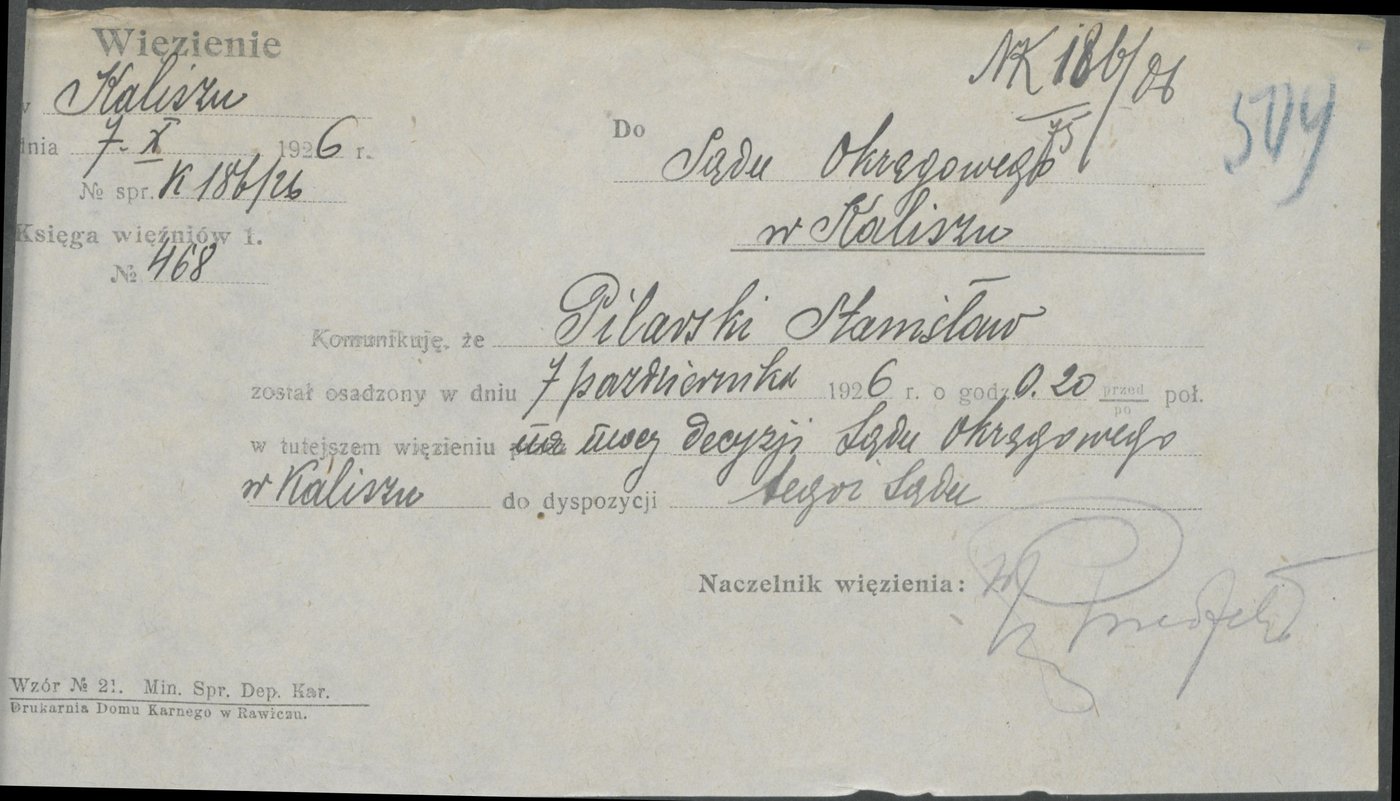 Więzienie
w Kaliszu
dnia 7. X 1926 r.
№ spr. K 186/26
Księga więźniów 1.
№ 468
NK 186/26
75
504
Do
Sądu Okręgowego
w Kaliszu
Komunikuję, że Pilarski Stanisław
został osadzony w dniu 7 października 1926 r. o godz. 0.20 przed/po poł.
w tutejszem więzieniu na mocy decyzji Sądu Okręgowego
w Kaliszu do dyspozycji tegoż Sądu
Naczelnik więzienia:
Wzór № 21. Min. Spr. Dep. Kar.
Drukarnia Domu Karnego w Rawiczu.